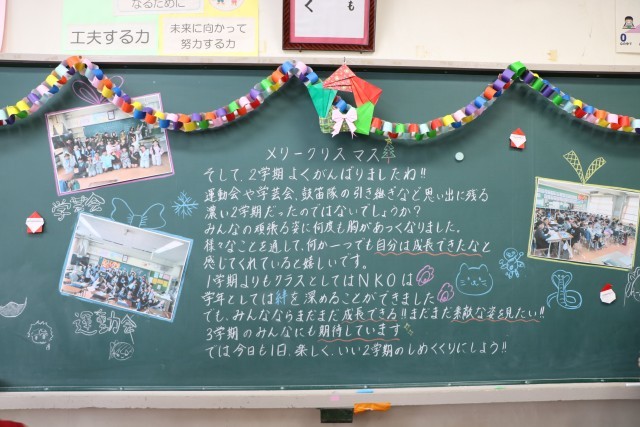 なるために
工夫する力
未来に向かって
努力する力
くも
メリークリスマス
そして、2学期よくがんばりましたね!!
運動会や学芸会、鼓笛隊の引き継ぎなど思い出に残る
濃い2学期だったのではないでしょうか?
みんなの頑張る姿に何度も胸があつくなりました。
様々なことを通して、何か一つでも自分は成長できたなと
感じてくれていると嬉しいです。
1学期よりもクラスとしてはNKOは
学年としては絆を深めることができました
でも、みんなならまだまだ成長できる!!まだまだ素敵な姿を見たい!!
3学期のみんなにも期待しています
では今日も1日、楽しく、いい2学期のしめくくりにしよう!!
学芸会
運動会